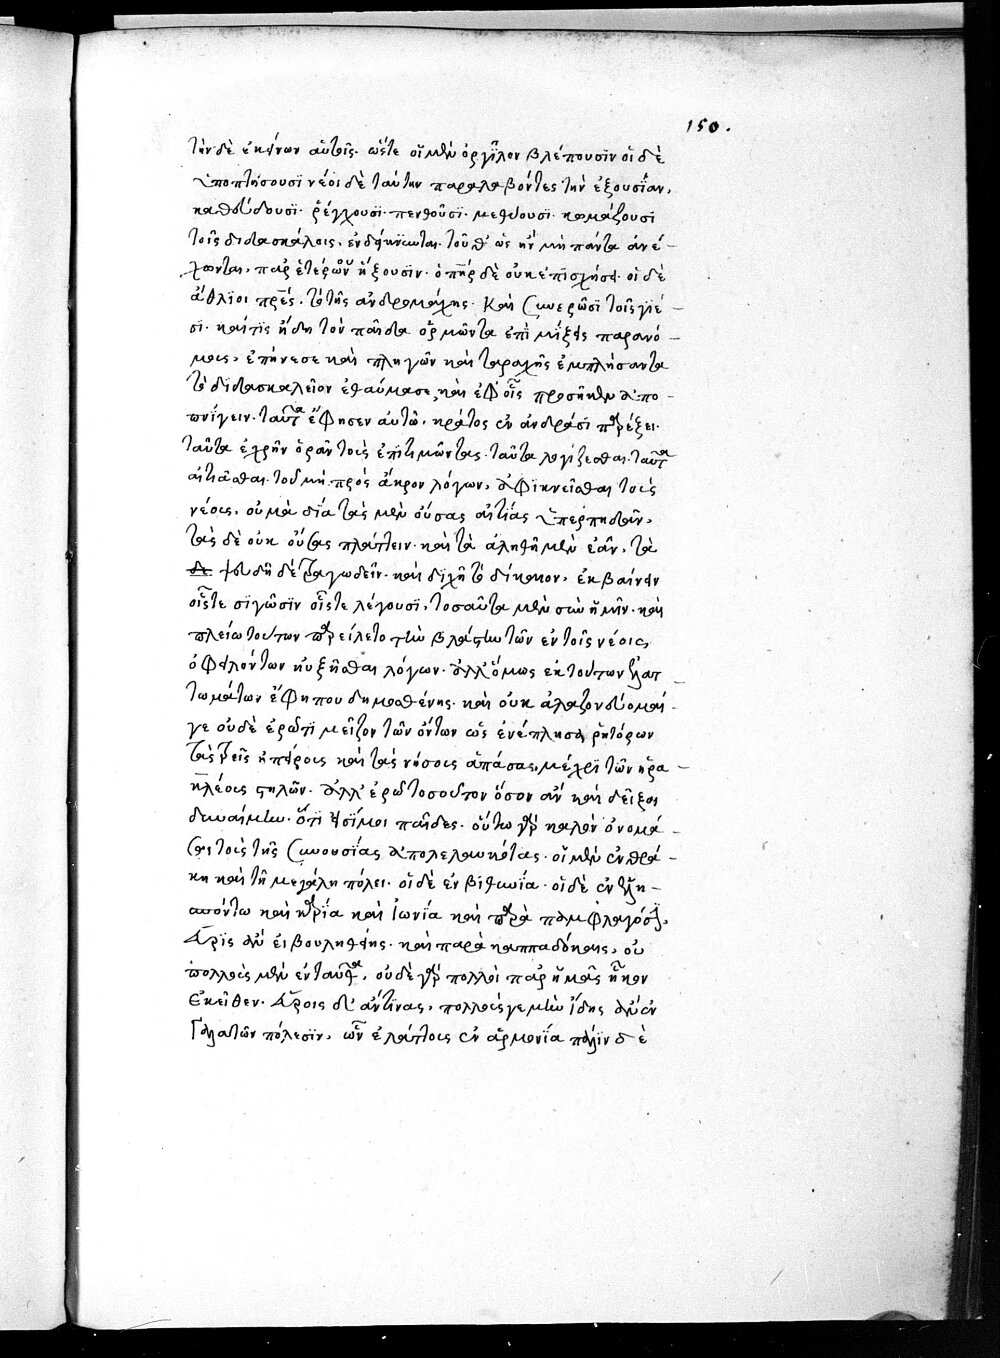 150.
τὴν δὲ ἐκείνων αὖθις. ὥστε οἱ μὲν ὀργίλον βλέπουσιν οἱ δὲ
ὑποπτήσουσι νέοι δὲ ταύτην παραλαβόντες τὴν ἐξουσίαν,
καθεύδουσι. ῥέγχουσι. πενθοῦσι. μεθύουσι. κωμάζουσι
τοῖς διδασκάλοις, ἐνδείκνυνται τοῦθ' ὡς ἢν μὴ πάντα ἀνέ-
χωνται, παρ' ἑτέρων ἥξουσιν. ὁ πατὴρ δὲ οὐκ ἐπισχήσει. οἱ δὲ
ἄθλιοι πατέρες, τὸ τῆς ἀνδρομάχης. καὶ συνερῶσι τοῖς υἱέ-
σι. καί τις ἤδη τὸν παῖδα ὁρμῶντα ἐπὶ μίξεις παρανό-
μους, ἐπήνεσε καὶ πληγῶν καὶ ταραχῆς ἐμπλήσαντα
τὸ διδασκαλεῖον ἐθαύμασε, καὶ ἐφ' οἷς προσῆκεν ἀπο-
πνίγειν. ταῦτα ἔφησεν αὐτῷ, κράτος ἐν ἀνδράσι παρέξει.
ταῦτα ἐχρῆν ὁρᾶν τοὺς ἐπιτιμῶντας. ταῦτα λογίζεσθαι. ταῦτα
αἰτιᾶσθαι. τοῦ μὴ πρὸς ἄκρον λόγων, ἀφικνεῖσθαι τοὺς
νέους, οὐ μὰ δία τὰς μὲν οὔσας αἰτίας ὑπερπηδᾶν,
τὰς δὲ οὐκ οὔσας πλάττειν. καὶ τὰ ἀληθῆ μὲν ἐᾶν, τὰ
δὲ ψευδῆ δὲ τραγωδεῖν. καὶ διχῆ τὸ δίκαιον, ἐκβαίνειν
οἷς τε σιγῶσιν οἷς τε λέγουσι, τοσαῦτα μὲν σὺν ἡμῖν. καὶ
πλείω τούτων παρείλετο τὴν βλάστην τῶν ἐν τοῖς νέοις
ὀφειλόντων ηὐξῆσθαι λόγων. ἀλλ' ὅμως ἐκ τούτων ἐλατ-
τωμάτων ἔφη που δημοσθένης. καὶ οὐκ ἀλαζονεύομαί
γε οὐδὲ ἐρῶ τι μεῖζον τῶν ὄντων ὡς ἐνέπλησα, ῥητόρων
τὰς τρεῖς ἠπείρους καὶ τὰς νήσους ἁπάσας, μέχρι τῶν ἡρα-
κλέους στηλῶν. ἀλλ' ἐρῶ τοσοῦτον ὅσον ἂν καὶ δεῖξαι
δυναίμην. ὅτι εἰσί μοι παῖδες. οὕτω γὰρ καλὸν ὀνομά-
σαι τοὺς τῆς συνουσίας ἀπολελαυκότας. οἱ μὲν ἐν θρά-
κη καὶ τῇ μεγάλῃ πόλει. οἱ δὲ ἐν βιθυνία. οἱ δὲ ἐν ἑλλη-
σπόντω καὶ καρία καὶ ἰωνία καὶ παρὰ παμφλαγόσι,
εὕροις δ' ἂν εἰ βουληθείης. καὶ παρὰ καππαδόκαις, οὐ
πολλοὺς μὲν ἐνταῦθα, οὐδὲ γὰρ πολλοὶ παρ' ἡμᾶς ἧκον
ἐκεῖθεν. εὕροις δ' ἄν τινας, πολλούς γε μὴν ἴδης ἂν ἐν
Γαλατῶν πόλεσιν, ὧν ἐλάττους ἐν ἀρμονία πάλιν δὲ